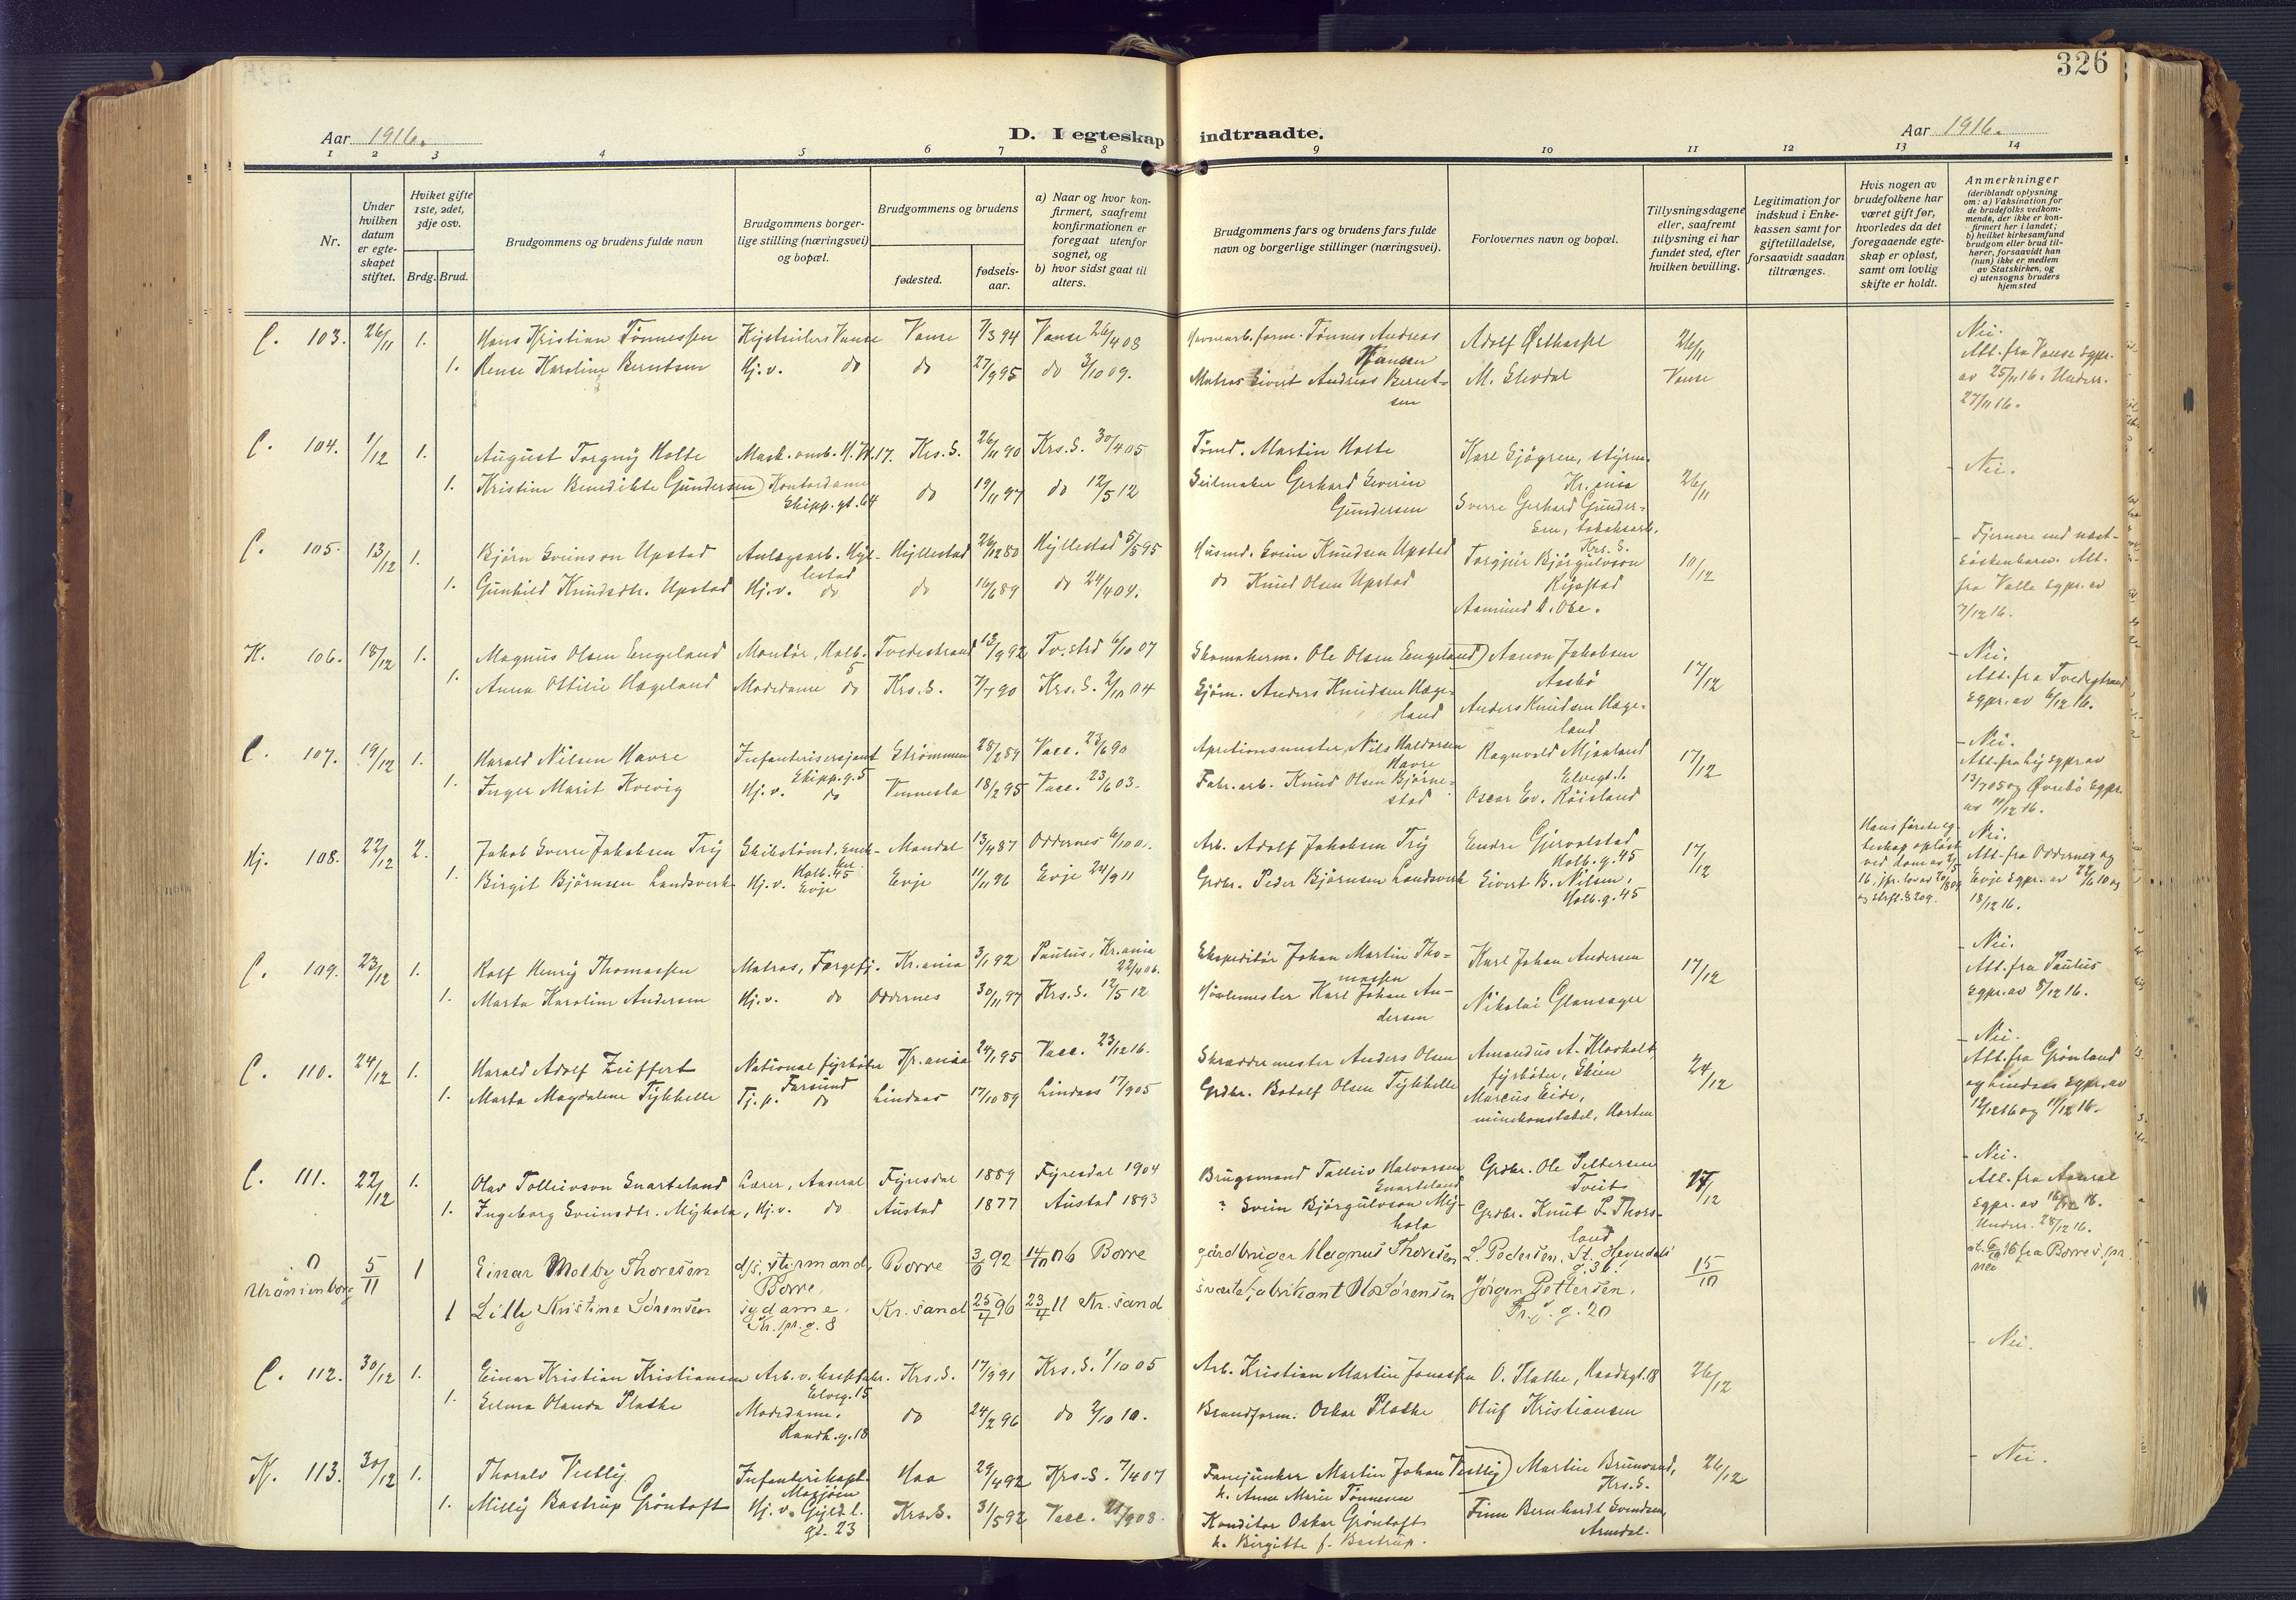 326
Aar 1916.
D. I egteskap indtraadte.
Aar 1916.
1 2 3 4 5 6 7 8 9 10 11 12 13 14
Nr.
Under hvilken datum er egteskapet stiftet.
Hvilket gifte 1ste, 2det, 3dje osv.
Brdg. Brud.
Brudgommens og brudens fulde navn
Brudgommens borgerlige stilling (næringsvei) og bopæl.
Brudgommens og brudens
fødested.
fødselsaar.
a) Naar og hvor konfirmert, saafremt konfirmationen er foregaat utenfor sognet, og
b) hvor sidst gaat til alters.
Brudgommens fars og brudens fars fulde navn og borgerlige stillinger (næringsvei).
Forlovernes navn og bopæl.
Tillysningsdagene eller, saafremt tillysning ei har fundet sted, efter hvilken bevilling.
Legitimation for indskud i Enkekassen samt for giftetilladelse, forsaavidt saadan tiltrænges.
Hvis nogen av brudefolkene har været gift før, hvorledes da det foregaaende egteskap er opløst, samt om lovlig skifte er holdt.
Anmerkninger
(deriblandt oplysning om: a) Vaksination for de brudefolks vedkommende, der ikke er konfirmert her i landet; b) hvilket kirkesamfund brudgom eller brud tilhører, forsaavidt han (hun) ikke er medlem av Statskirken, og c) utensogns bruders hjemsted
C. 103. 26/11 1. Hans Kristian Tønnessen Vanse 7/3 94 Vanse 26/4 08 Tønnes Andreas Hansen Adolf 26/11 Nei.
1. Karoline Berntsen Hj.v. do do 27/9 95 do 3/10 09. Matros Sivert Andreas Berntsen M. Vanse Att. fra Vanse sgpr. av 25/11 16. Underr. 27/11 16.
C. 104. 1/12 1. August Torgny Holte 17. Krs.S. 26/11 90 Krs.S. 30/4 05 Tømd. Martin Holte Karl Sjögren, styrm. Kr.ania 26/11 Nei.
1. Kristine Benedikte Gundersen Kontordame Skipp.gt. 64 do 19/11 97 do 12/5 12 Seilmaker Gerhard Severin Gundersen Sverre Gerhard Gundersen, tobaksarb. Krs.S.
C. 105. 13/12 1. Bjørn Sveinson Upstad Anlægsarb. Hyllestad Hyllestad 26/12 80 Hyllestad 5/5 95 Husmd. Svein Knudsen Upstad Torgjur Bjørgulvson Rysstad 10/12 Fjernere end næstsøskenbarn. Att. fra Valle sgpr. av 7/12 16.
1. Gunhild Knudsdtr. Upstad Hj.v. do do 16/6 89 do 24/4 04. do Knud Olsen Upstad Aamund
K. 106. 18/12 1. Magnus Olsen Engeland Montør, Holb. 5 Tvedestrand 13/9 92 Tv.strd 6/10 07 Skomakerm. Ole Olsen Engeland Aanon Jakobsen Aasbö 17/12 Nei.
1. Anna Ottilie Hægeland Modedame do Krs.S. 7/7 90 Krs.S. 2/10 04 Sjøm. Anders Knudsen Hægeland Anders Knudsen Hægeland Att. fra Tvedestrand sgpr. av 6/12 16.
C. 107. 19/12 1. Harald Nilsen Havre Infanterisersjant Skipp.g. 5 Strømmen 28/2 89 Vacc. 23/6 90 Apretionsmester Nils Haldorsen Havre Ragnvald Mjaaland Elvegt. 17/12 Nei.
1. Inger Marit Kveivig Hj.v. do Vennesla 18/2 95 Vacc. 23/6 03. Fabr.arb. Knud Olsen Bjørnestad Oscar Ev. Röisland 13/7 05 og Øvrebö sgpr. av 11/12 16.
Hj. 108. 22/12 2. Jakob Sverre Jakobsen Try Holb. 45 Mandal 13/4 87 Oddernes 6/10 01. Arb. Adolf Jakobsen Try Endre Gjervolstad Holb.g. 45 17/12 Nei.
1. Birgit Björnsen Landsverk Hj.v. Evje Evje 11/11 96 Evje 24/9 11 Grdbr. Peder Björnsen Landsverk Sivert B. Nilsen, Holb.g. 45 Att. fra Oddernes og Evje sgpr. av 22/6 10 og 18/12 16.
C. 109. 23/12 1. Rolf Henry Thomassen Matros, Færgefj. Kr.ania 3/1 92 Paulus, Kr.ania 22/4 06. Ekspeditör Johan Martin Thomassen Karl Johan Andersen 17/12 Nei.
1. Marta Karoline Andersen Hj.v. do Oddernes 30/11 97 Krs.S. 12/5 12 Hövlemester Karl Johan Andersen Nikolai Glansager Att. fra Paulus sgpr. av 8/12 16.
C. 110. 24/12 1. Harald Adolf Zeiffert Farsund Kr.ania 24/1 95 Vacc. 23/12 16. Skræddermester Anders Olsen Amandus A. fyrböter, Skien 24/12 Nei.
1. Marta Magdalene Tykkelle Tj.p. do Lindaas 17/10 89 Lindaas 17/9 05 Grdbr. Botolf Olsen Tykkelle Marcus Eide, minekonstabel, Horten Att. fra Grönland og Lindaas sgpr. av 12/12 16 og 11/12 16.
C. 111. 22/12 1. Olav Tollivson Snarteland Lærer, Aaseral Fyresdal 1889 Fyresdal 1904 Brugsmand Talleiv Halvorsen Snarteland Grdbr. Ole Pettersen Tveit 17/12 Nei.
1. Ingeborg Sveinsdtr. Myhola, Hj.v. do Austad 1877 Austad 1893 Svein Björgulvson Myhola Grdbr. Knut P. Thorsland Att. fra Aaseral sgpr. av Underr. 28/12 16.
Uranienborg 5/11 1 Einar Melby Thoresen d/s. styrmand, Borre Borre 3/6 92 14/10 06 Borre gårdbruger Magnus Thoresen L. Pedersen, 15/10 fra Borre s.pr. nei
1 Lilly Kristine Sørensen sydame. Kr. sand 25/4 96 23/4 11 Kr. sand Ole Sørensen Jørgen Pettersen, g. 20
C. 112. 30/12 1. Einar Kristian Kristiansen Elveg. 15 Krs.S. 17/9 91 Krs.S. 1/10 05 Arb. Kristian Martin Jonassen O. Plathe, 26/12 Nei.
1. Selma Olanda Plathe Modedame. do 24/2 96 do 2/10 10. Brandform. Oskar Plathe Oluf Kristiansen
K. 113. 30/12 1. Thoralv Vestly Infanterikapt. Mosjøen Haa 29/4 92 Krs.S. 7/4 07 Fanejunker Martin Johan Vestly Martin Brunvand, Krs.S. 26/12 Nei.
h. Anne Marie Tønnesen
1. Milly Bastrup Gröntoft Hj.v. Gyldl. gt. 23 Krs.S. 31/5 92 Vacc. 21/9 08. Konditor Oskar Gröntoft Finn Bernhardt Svendsen, Arendal.
h. Birgitte f. Bastrup.